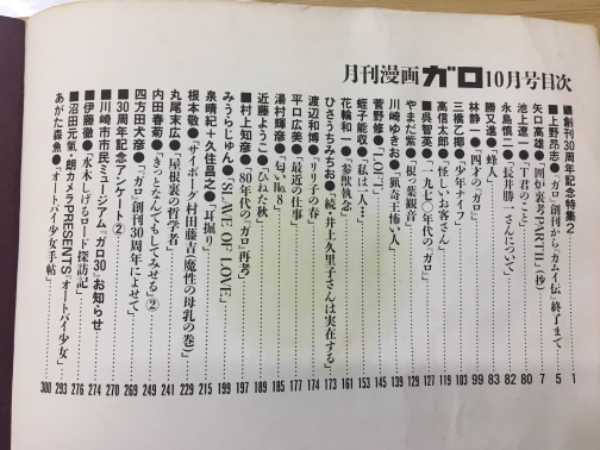 月刊漫画 ガロ 10月号目次
■創刊30周年記念特集2……1
■上野昂志●『ガロ』創刊から『カムイ伝』終了まで……5
矢口高雄●「囲炉裏考PARTII」(抄)……7
池上遼一●「T君のこと」……80
永島慎二●「長井勝一さんについて」……82
勝又進●「蜂人」……83
林静一●「四才の『ガロ』」……99
三橋乙揶●「少年ナイフ」……103
高信太郎●「怪しいお客さん」……119
■呉智英●「一九七〇年代の『ガロ』」……127
やまだ紫●「根っ葉観音」……129
川崎ゆきお●「猟奇王怖い人」……139
菅野修●「LOFT」……145
蛭子能収●「私は一人…」……153
花輪和一●「参獣執念」……161
ひさうちみちお●「続・井上久里子さんは実在する」……173
渡辺和博●「リリ子の春」……174
平口広美●「最近の仕事」……177
湯村輝彦●「匂いNo.8」……185
近藤ようこ●「ひねた秋」……189
■村上知彦●「'80年代の『ガロ』再考」……197
みうらじゅん●「SLAVE OF LOVE」……199
泉晴紀+久住昌之●「耳掘り」……215
根本敬●「サイボーグ村田藤吉(魔性の母乳の巻)」……229
丸尾末広●「屋根裏の哲学者」……241
内田春菊●「きっとなんてもしてみせる」②……249
四方田犬彦●「『ガロ』創刊30周年によせて」……269
■30周年記念アンケート②……270
■川崎市市民ミュージアム『ガロ30』お知らせ……274
■伊藤徹●「水木しげるロード探訪記」……276
■沼田元氣+朗カメラPRESENTS『オートバイ少女』……293
あがた森魚●「オートバイ少女手帖」……300